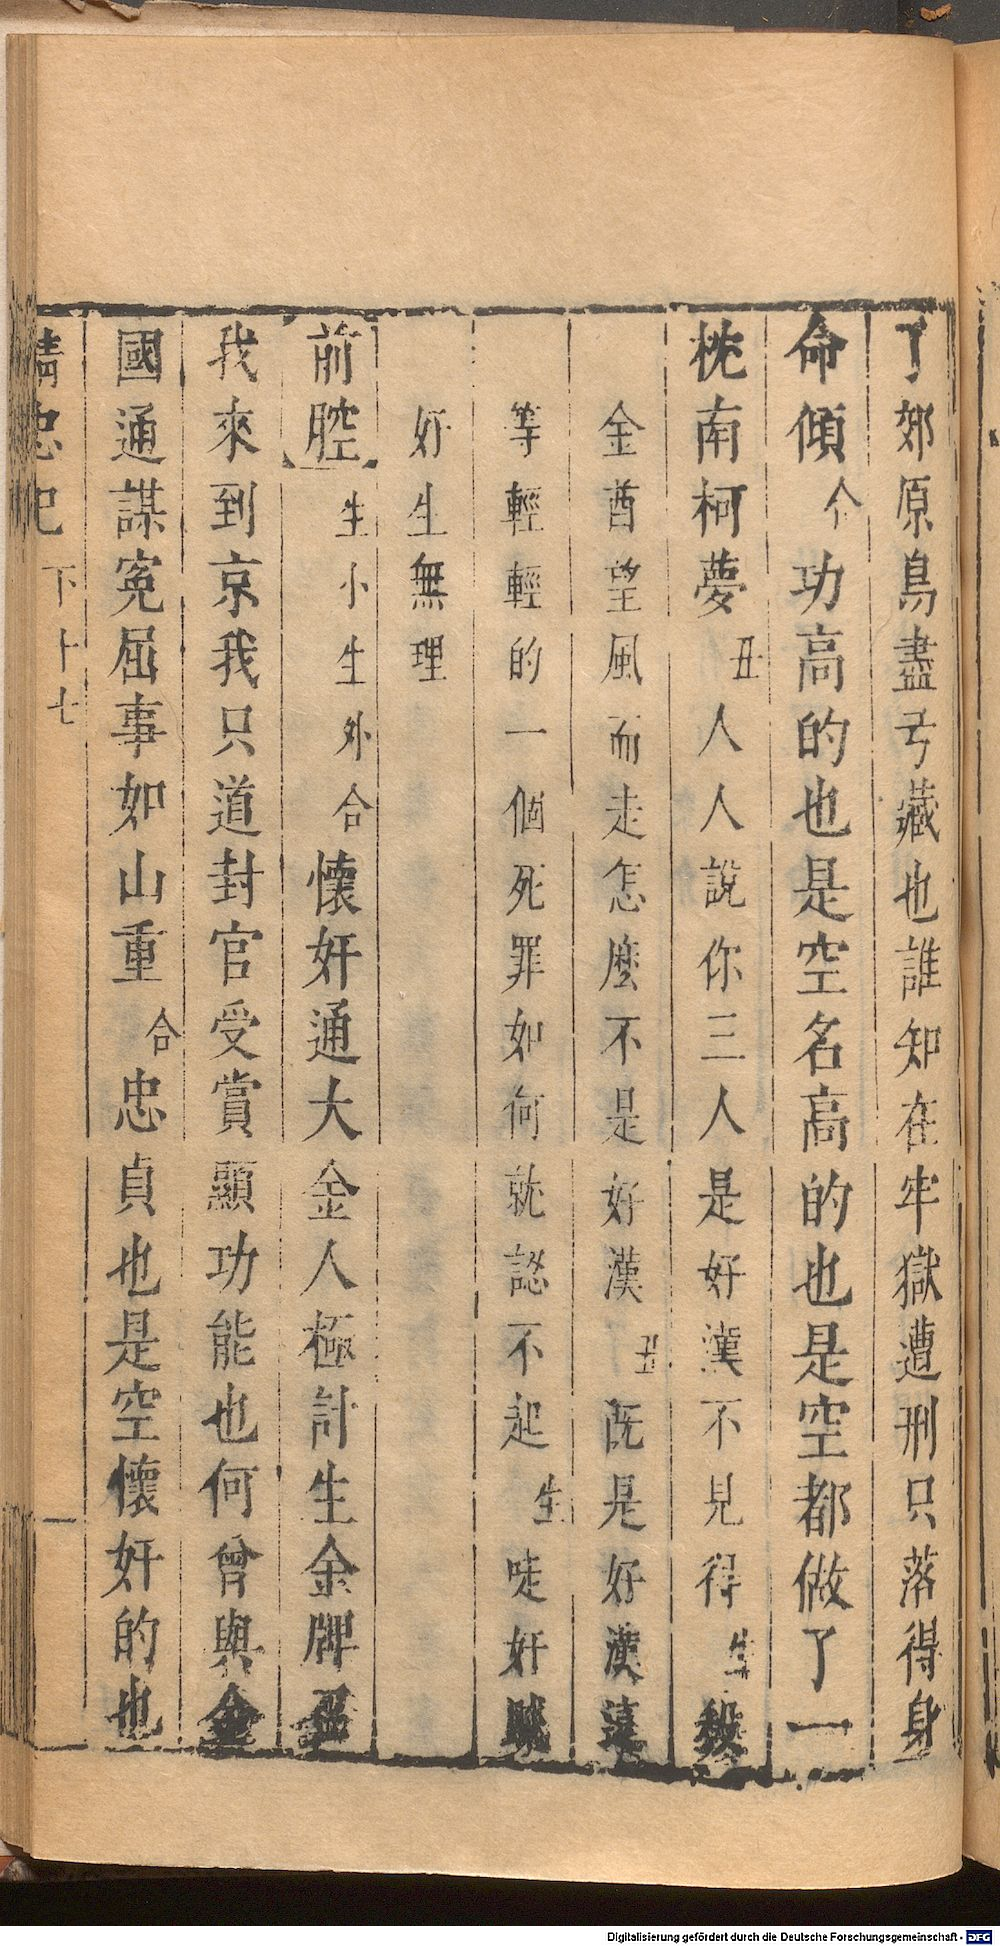 了郊原鳥盡弓藏也誰知在牢獄遭刑只落得身
命傾合功高的也是空名高的也是空都做了一
枕南柯夢丑人人說你三人是好漢不見得生殺
金酋望風而走怎麼不是好漢丑既是好漢這
等輕輕的一個死罪如何就認不起生唗奸賊
好生無理
前腔生小生外合懷奸通大金人極計生金牌召
我來到京我只道封官受賞顯功能也何曾與金
國通謀冤屈事如山重合忠貞也是空懷奸的也
精忠記 下 十七
Digitalisierung gefördert durch die Deutsche Forschungsgemeinschaft - DFG